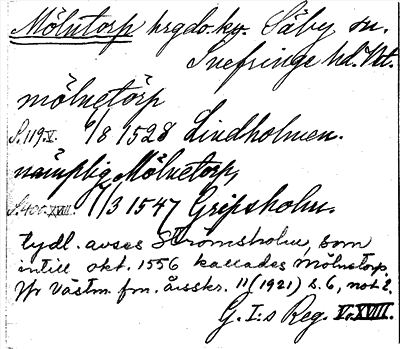 Mölntorp hrgdo.ky. Säby sn.
Snefringe hd. Vt.
mölnetörp
S.119.V. 6/8 1528 Lindholmen.
nämplig Mölnetorp
S.400.XVIII. 1/3 1547 Gripsholm.
tydl. avses Strömsholm, som
intill okt. 1556 kallades Mölnetorp.
Jfr Västm. fm. årsskr. 11 (1921) s. 6, not 2.
G. I:s Reg. V. XVIII.